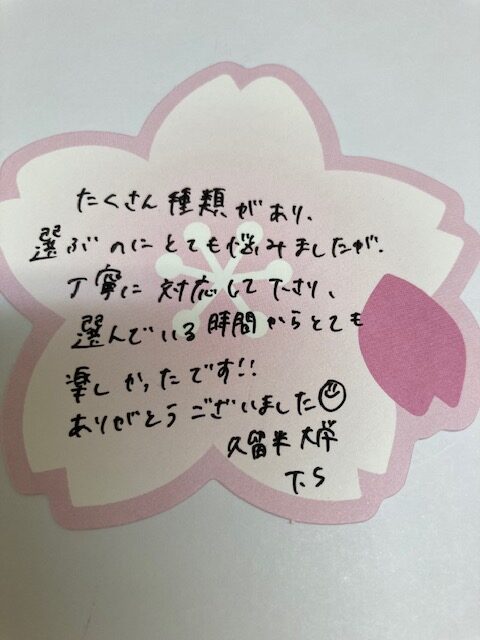 たくさん種類があり、
選ぶのにとても悩みましたが、
丁寧に対応して下さり、
選んでいる時間からとても
楽しかったです!!
ありがとうございました☺
久留米大学
T.S